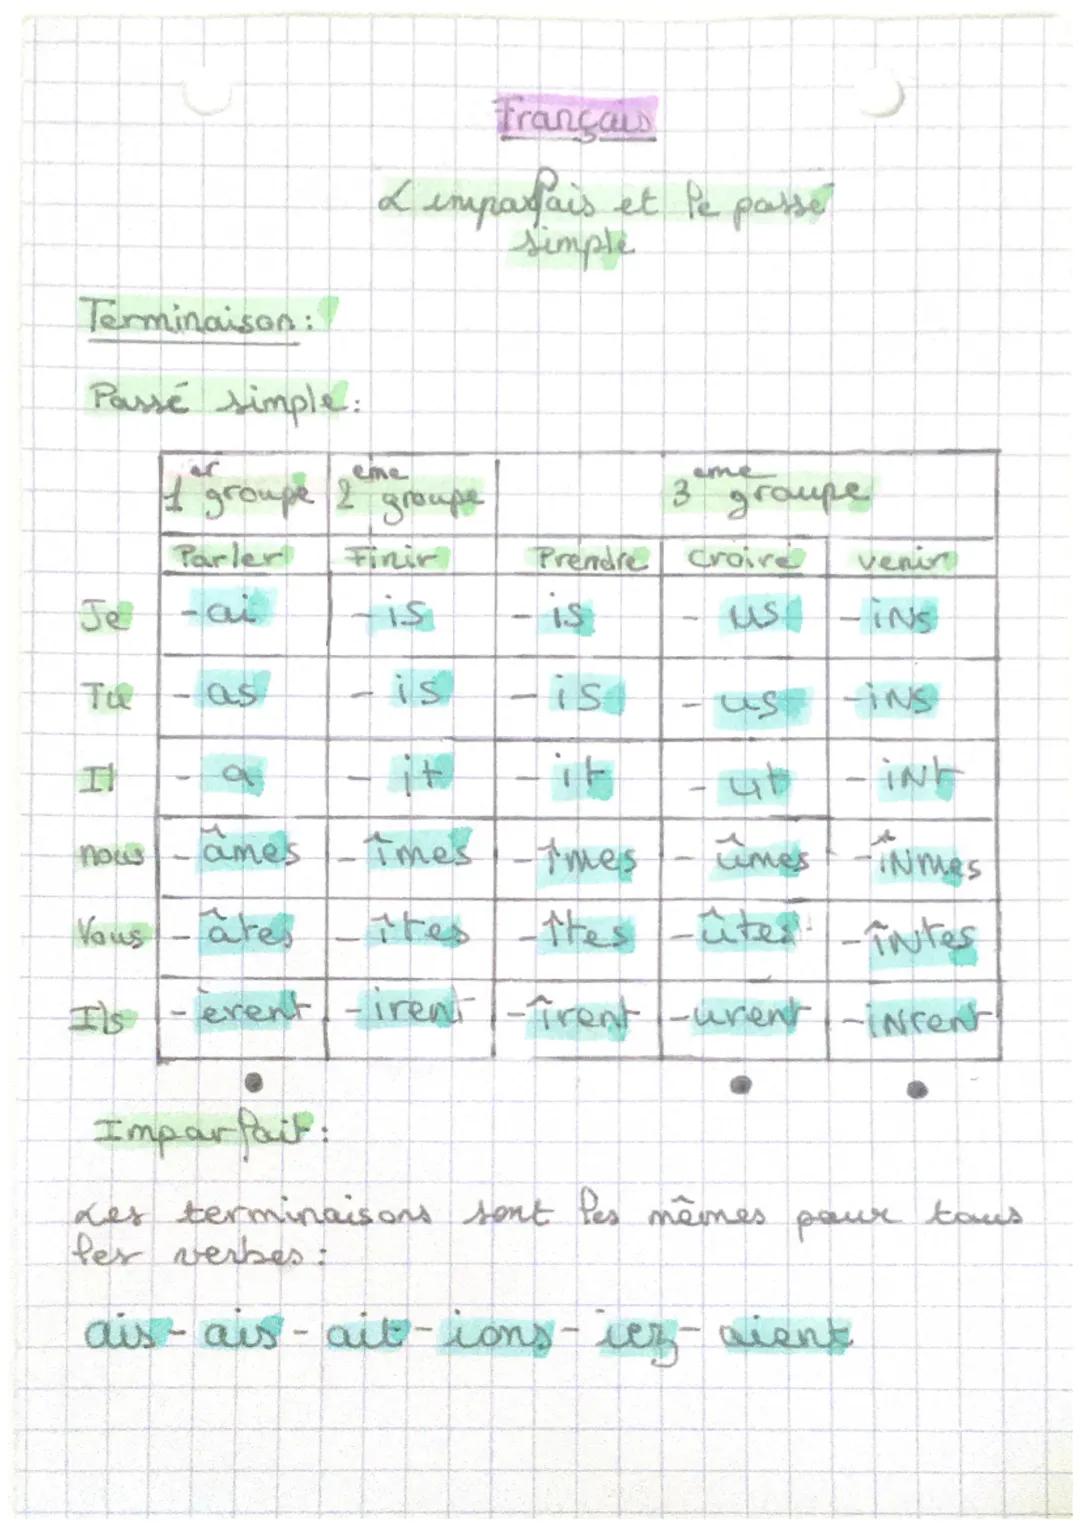 Français
L'imparfais et le passé
simple
Terminaison :
Passé simple :
1er groupe 2eme groupe 3eme groupe
Parler Finir Prendre croire venir
Je -ai -is -is -us -ins
Tu -as -is -is -us -ins
Il -a -it -it -ut -int
nous -âmes -îmes -îmes -ûmes -înmes
Vous -âtes -îtes -îtes -ûtes -întes
Ils -èrent -irent -îrent -urent -inrent
Imparfait :
Les terminaisons sont les mêmes pour tous
les verbes :
ais - ais - ait - ions - iez - aient